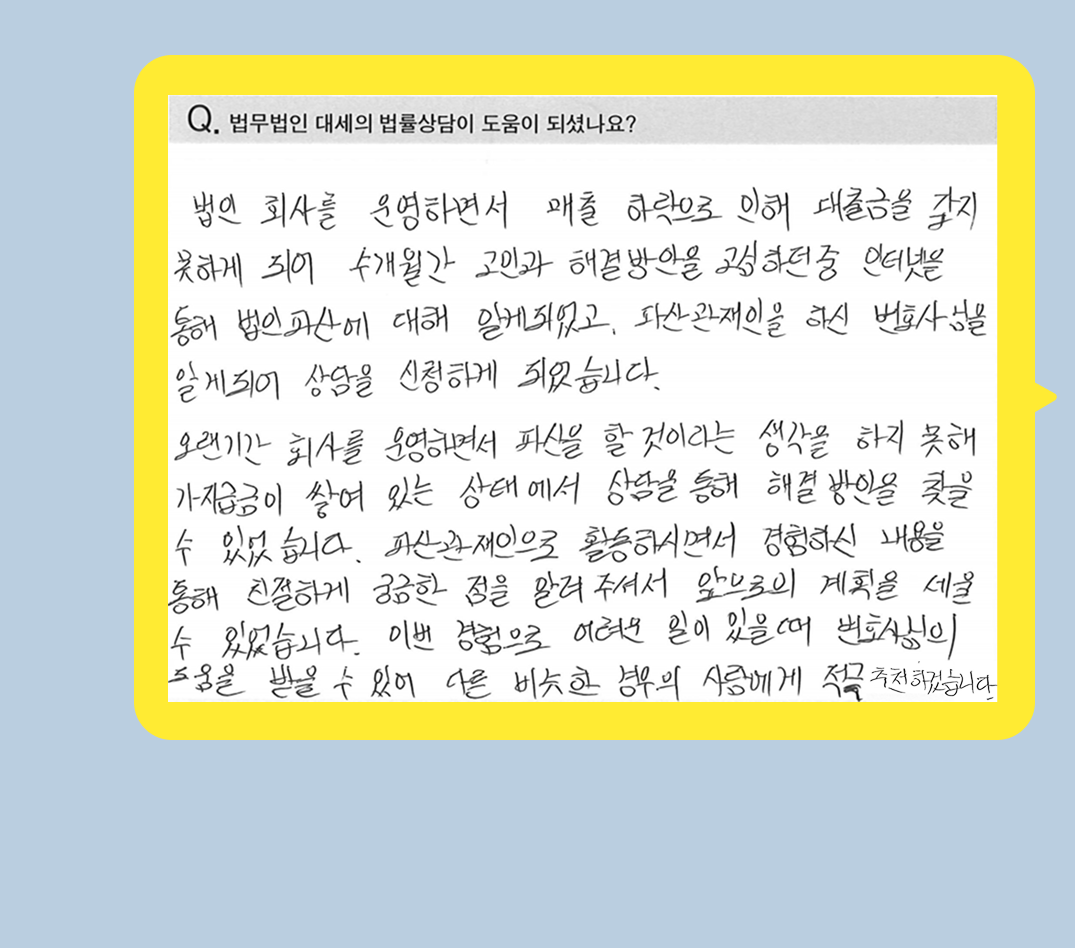 Q. 법무법인 대세의 법률상담이 도움이 되셨나요?
법인 회사를 운영하면서 매출 하락으로 인해 대출금을 갚지
못하게 되어 수개월간 고민과 해결방안을 고심하던중 인터넷을
통해 법인파산에 대해 알게되었고, 파산관재인을 하신 변호사님을
알게되어 상담을 신청하게 되었습니다.
오랜기간 회사를 운영하면서 파산을 할 것이라는 생각을 하지 못해
가지급금이 쌓여 있는 상태에서 상담을 통해 해결방안을 찾을
수 있었습니다. 파산관재인으로 활동하시면서 경험하신 내용을
통해 친절하게 궁금한 점을 알려주셔서 앞으로의 계획을 세울
수 있었습니다. 이번 경험으로 어려운 일이 있을때 변호사님의
도움을 받을 수 있어 다른 비슷한 경우의 사람에게 적극 추천하겠습니다